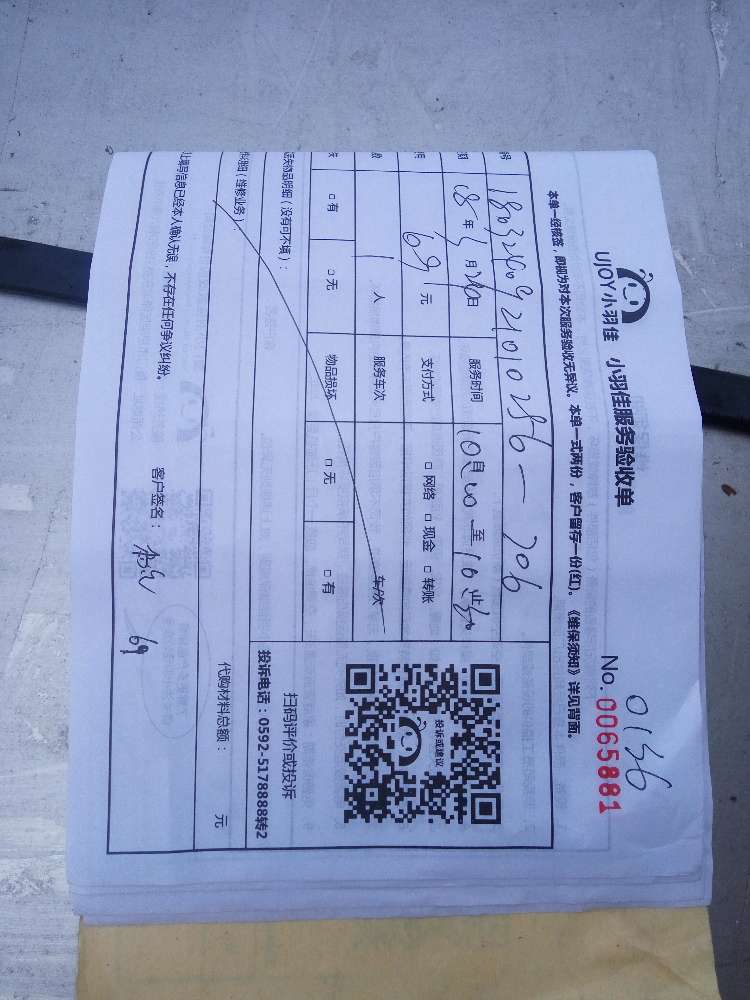 UJOY小羽佳 小羽佳服务验收单
0136
No. 0065881
本单一经核签，即视为对本次服务验收无异议。本单一式两份，客户留存一份(红)。《维保须知》详见背面。
号
期 18年3月20日 服务时间 至
用 69元 支付方式 □网络 □现金 □转账
数 1人 服务车次 车/次
失 □有 □无 物品损坏 □无 □有
丢失物品明细（没有可不填）：
投诉或建议
扫码评价或投诉
投诉电话：0592-5178888转2
（维修业务）
代购材料总额： 元
上填写信息已经本人确认无误，不存在任何争议纠纷。
客户签名： 69